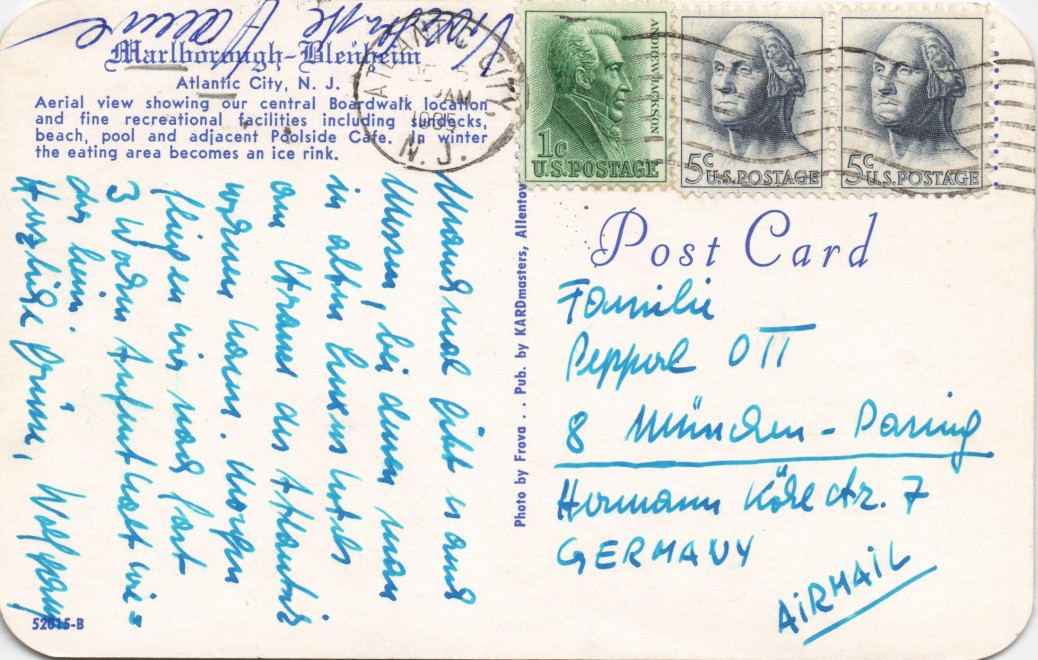 Marlborough-Blenheim
Atlantic City, N. J.
Aerial view showing our central Boardwalk location
and fine recreational facilities including sundecks,
beach, pool and adjacent Poolside Cafe. In winter
the eating area becomes an ice rink.
ATLANTIC CITY,
AM
N. J.
1c
U.S. POSTAGE
ANDREW JACKSON
5c U.S. POSTAGE
5c U.S. POSTAGE
Manchmal gibt es auch
Messen, bei denen man
in alten Luxus hotels
am Strand des Atlantik
wohnen kann. Morgen
fliegen wir nach fast
3 Wochen Aufenthalt wie=
der heim.
Herzliche Grüsse, Wolfgang
52615-B
Photo by Frova .. Pub. by KARDmasters, Allentow
Post Card
Familie
OTT
8 München - Pasing
Hermann Köhl Str. 7
GERMANY
AIRMAIL